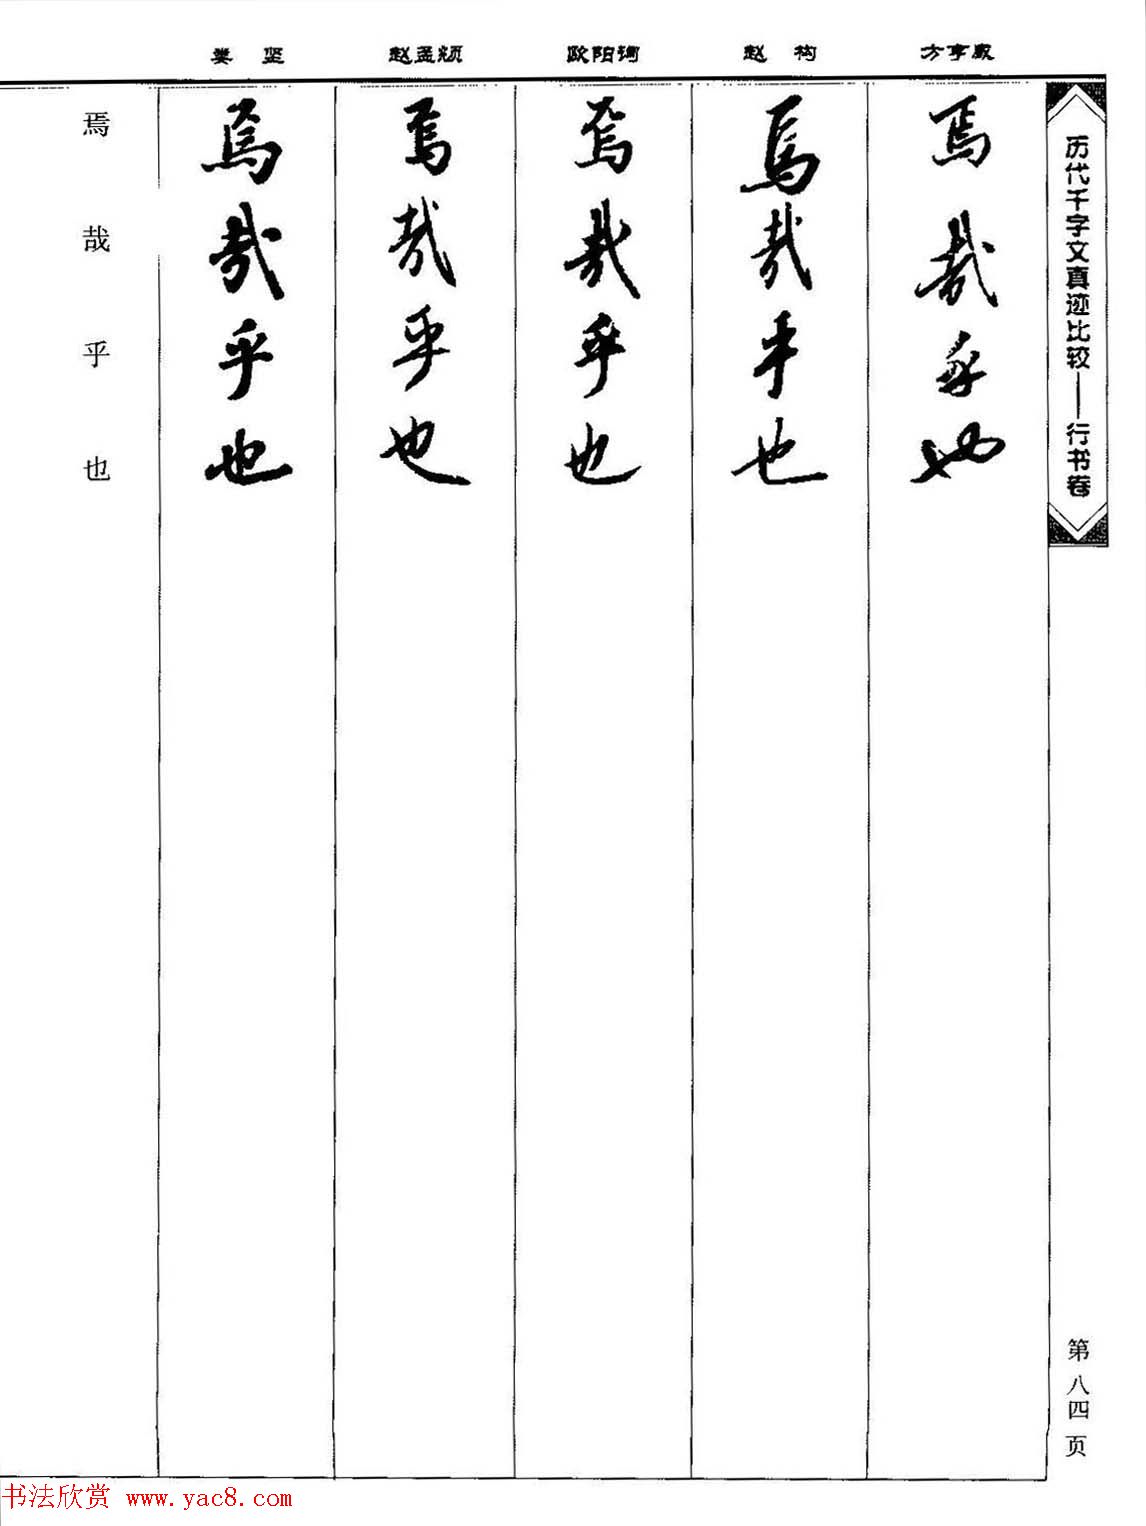 历代千字文真迹比较——行书卷
第八四页
方孝孺
焉哉乎也
赵构
焉哉乎也
欧阳询
焉哉乎也
赵孟頫
焉哉乎也
娄坚
焉哉乎也
焉哉乎也
书法欣赏 www.yac8.com